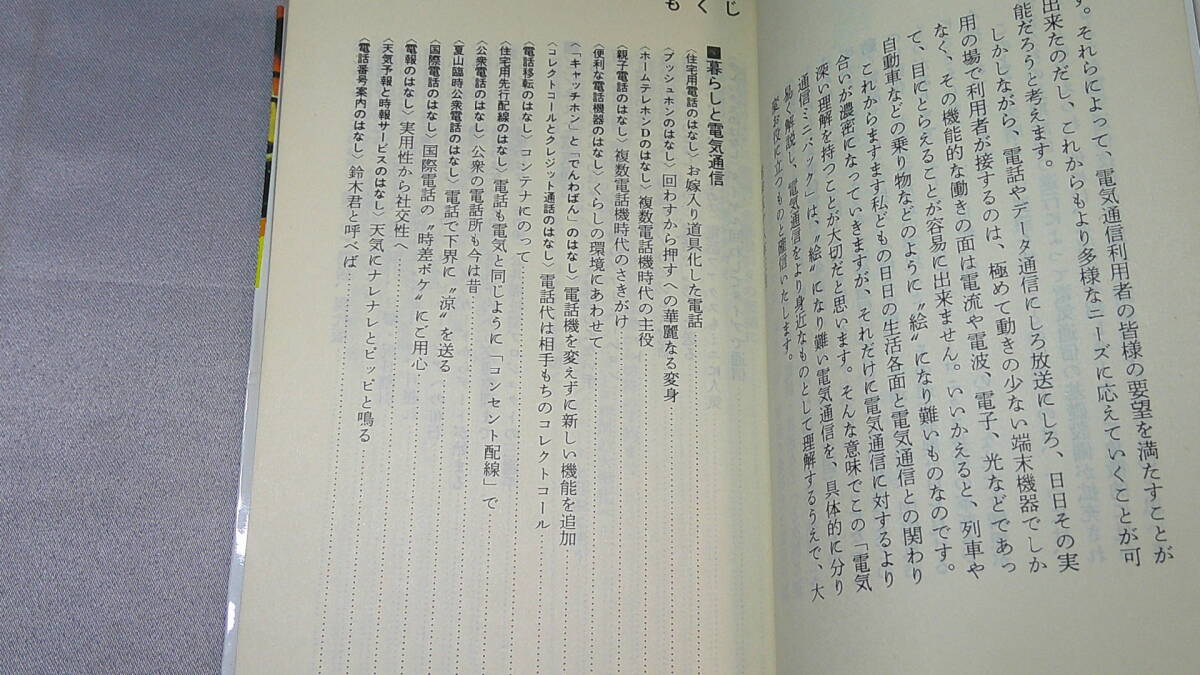 す。それらによって、電気通信利用者の皆様の要望を満たすことが
出来たのだし、これからもより多様なニーズに応えていくことが可
能だろうと考えます。
しかしながら、電話やデータ通信にしろ放送にしろ、日日その実
用の場で利用者が接するのは、極めて動きの少ない端末機器でしか
なく、その機能的な働きの面は電流や電波、電子、光などであっ
て、目にとらえることが容易に出来ません。いいかえると、列車や
自動車などの乗り物などのように〝絵〟になり難いものなのです。
これからますます私どもの日日の生活各面と電気通信との関わり
合いが濃密になっていきますが、それだけに電気通信に対するより
深い理解を持つことが大切だと思います。そんな意味でこの「電気
通信ミニパック」は、〝絵〟になり難い電気通信を、具体的に分り
易く解説し、電気通信をより身近なものとして理解するうえで、大
変お役に立つものと確信いたします。
もくじ
暮らしと電気通信
〈住宅用電話のはなし〉お嫁入り道具化した電話
〈プッシュホンのはなし〉回わすから押すへの華麗なる変身
〈ホームテレホンDのはなし〉複数電話機時代の主役
〈親子電話のはなし〉複数電話機時代のさきがけ
〈便利な電話機器のはなし〉くらしの環境にあわせて
〈「キャッチホン」と「でんわばん」のはなし〉電話機を変えずに新しい機能を追加
〈コレクトコールとクレジット通話のはなし〉電話代は相手もちのコレクトコール
〈電話移転のはなし〉コンテナにのって
〈住宅用先行配線のはなし〉電話も電気と同じように「コンセント配線」で
〈公衆電話のはなし〉公衆の電話所も今は昔
〈夏山臨時公衆電話のはなし〉電話で下界に〝涼〟を送る
〈国際電話のはなし〉国際電話の〝時差ボケ〟にご用心
〈電報のはなし〉実用性から社交性へ
〈天気予報と時報サービスのはなし〉天気にナレナレとピッピと鳴る
〈電話番号案内のはなし〉鈴木君と呼べば